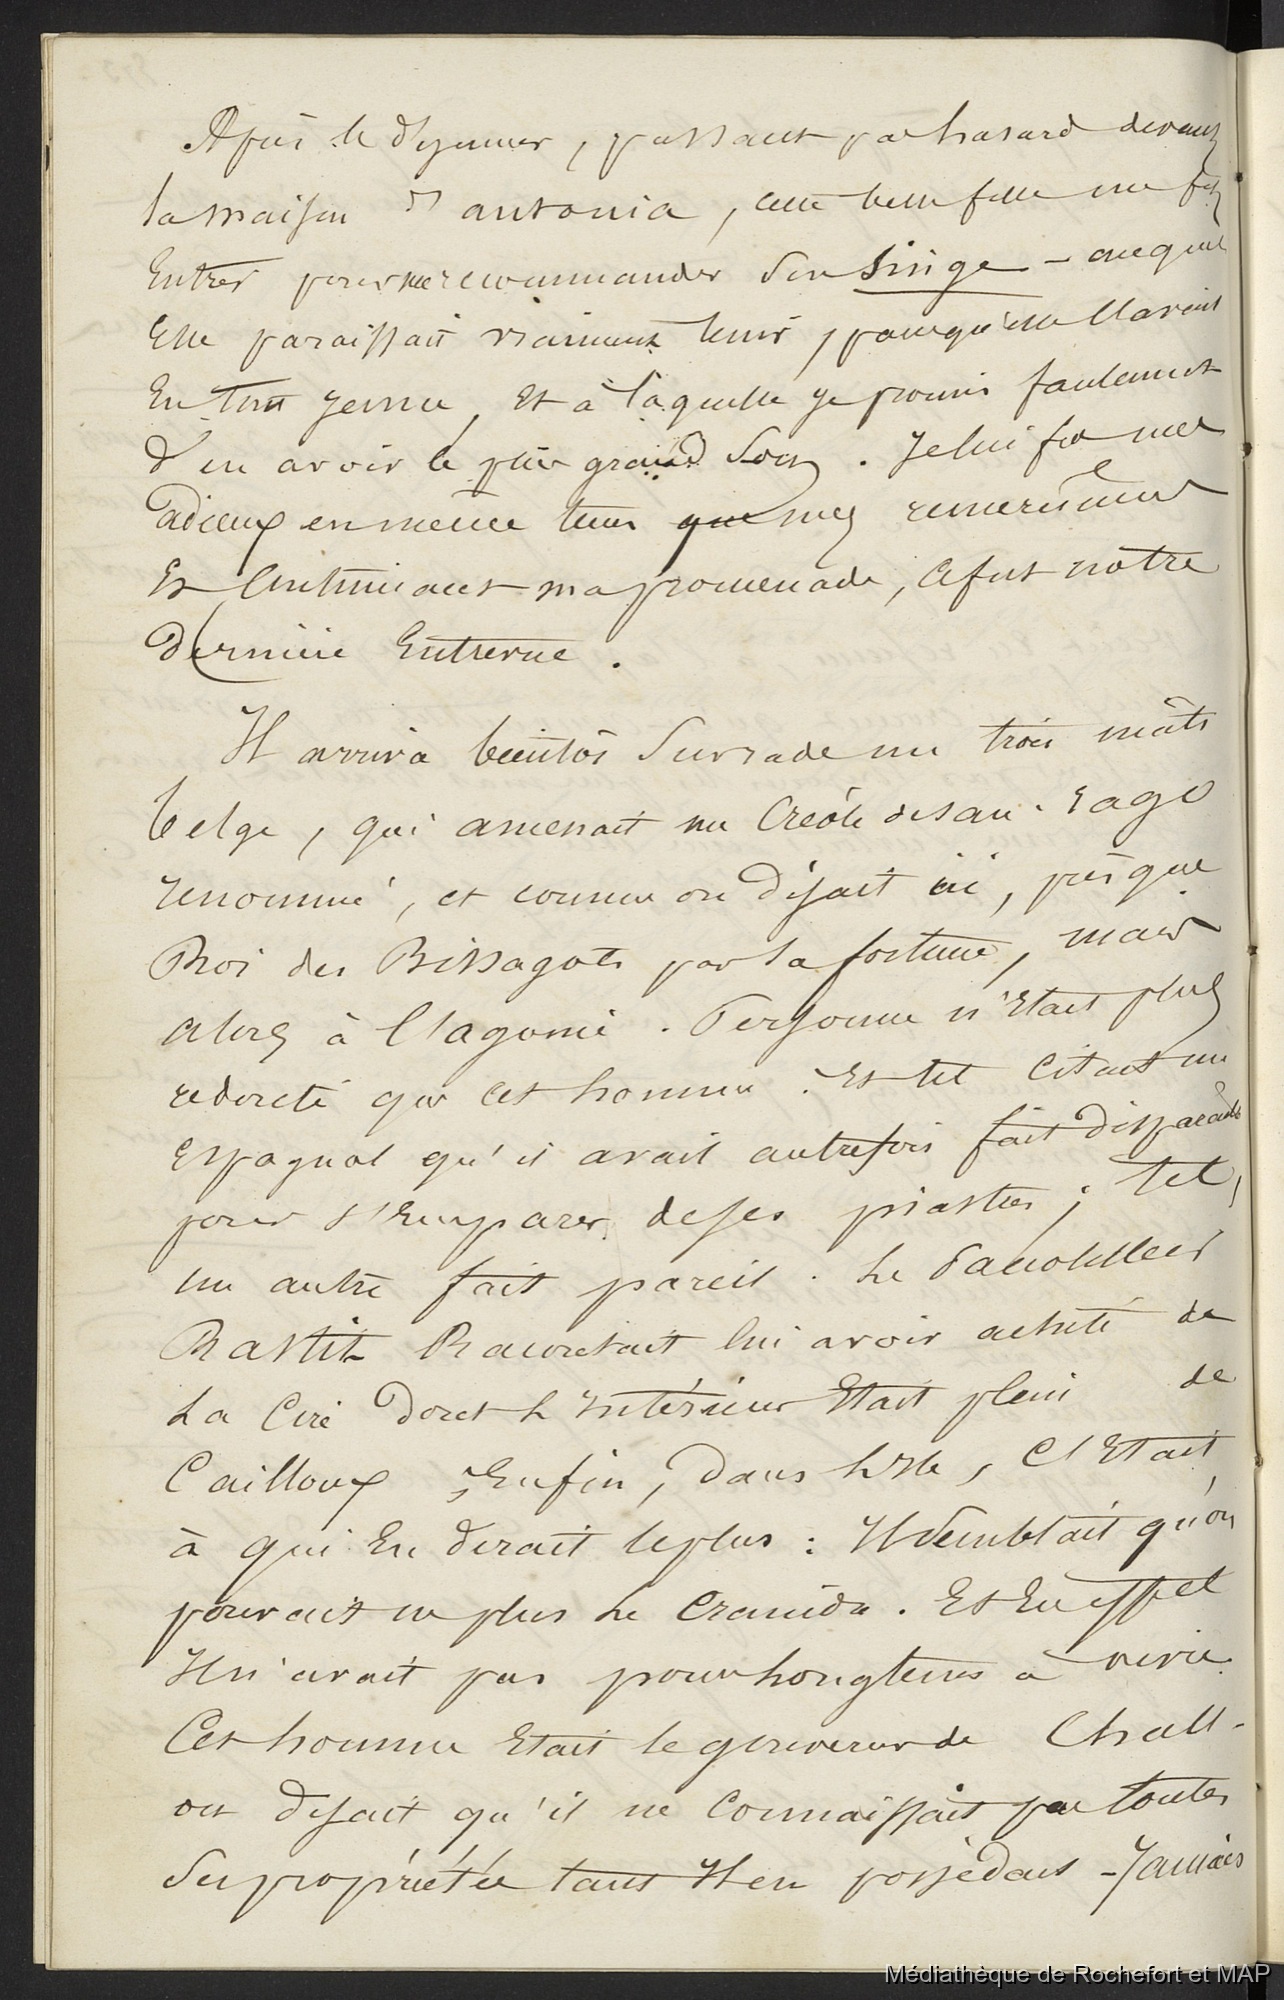 Après le déjeuner, passant par hasard devant
la maison d'antonia, cette belle fille me fit
Entrer pour me recommander son singe - auquel
Elle paraissait vraiment tenir, puisqu'elle l'avait
En tout jeune, Et à laquelle je promis
d'en avoir le plus grand soin. Je lui fis mes
adieux en même tems que mes remerciemens
Et Continuant ma promenade, Ce fut nôtre
dernière Entrevue.
Il arriva bientôt sur rade un trois mâts
belge, qui amenait un Créole de san-Yago
renommé, et comme on disait ici, presque
Roi des Bissagots par sa fortune, mais
alors à l'agonie. Personne n'Etait plus
redouté que cet homme. Et tel Citait un
Espagnol qu'il avait autrefois fait disparaître
pour s'Emparer de ses piastres; tel,
un autre fait pareil. Le
Racontait lui avoir acheté de
La Cire dont L'intérieur Etait plein de
Cailloux; Enfin, dans L'isle, C'Etait
à qui En dirait le plus: Il semblait qu'on
pouvait ne plus Le Craindre. Et En effet
Il n'avait pas pour Longtems à vivre.
Cet homme Etait le gouverneur de
on disait qu'il ne Connaissait pas toutes
Ses propriétés tant Il en possédait - Jamais
Médiathèque de Rochefort et MAP